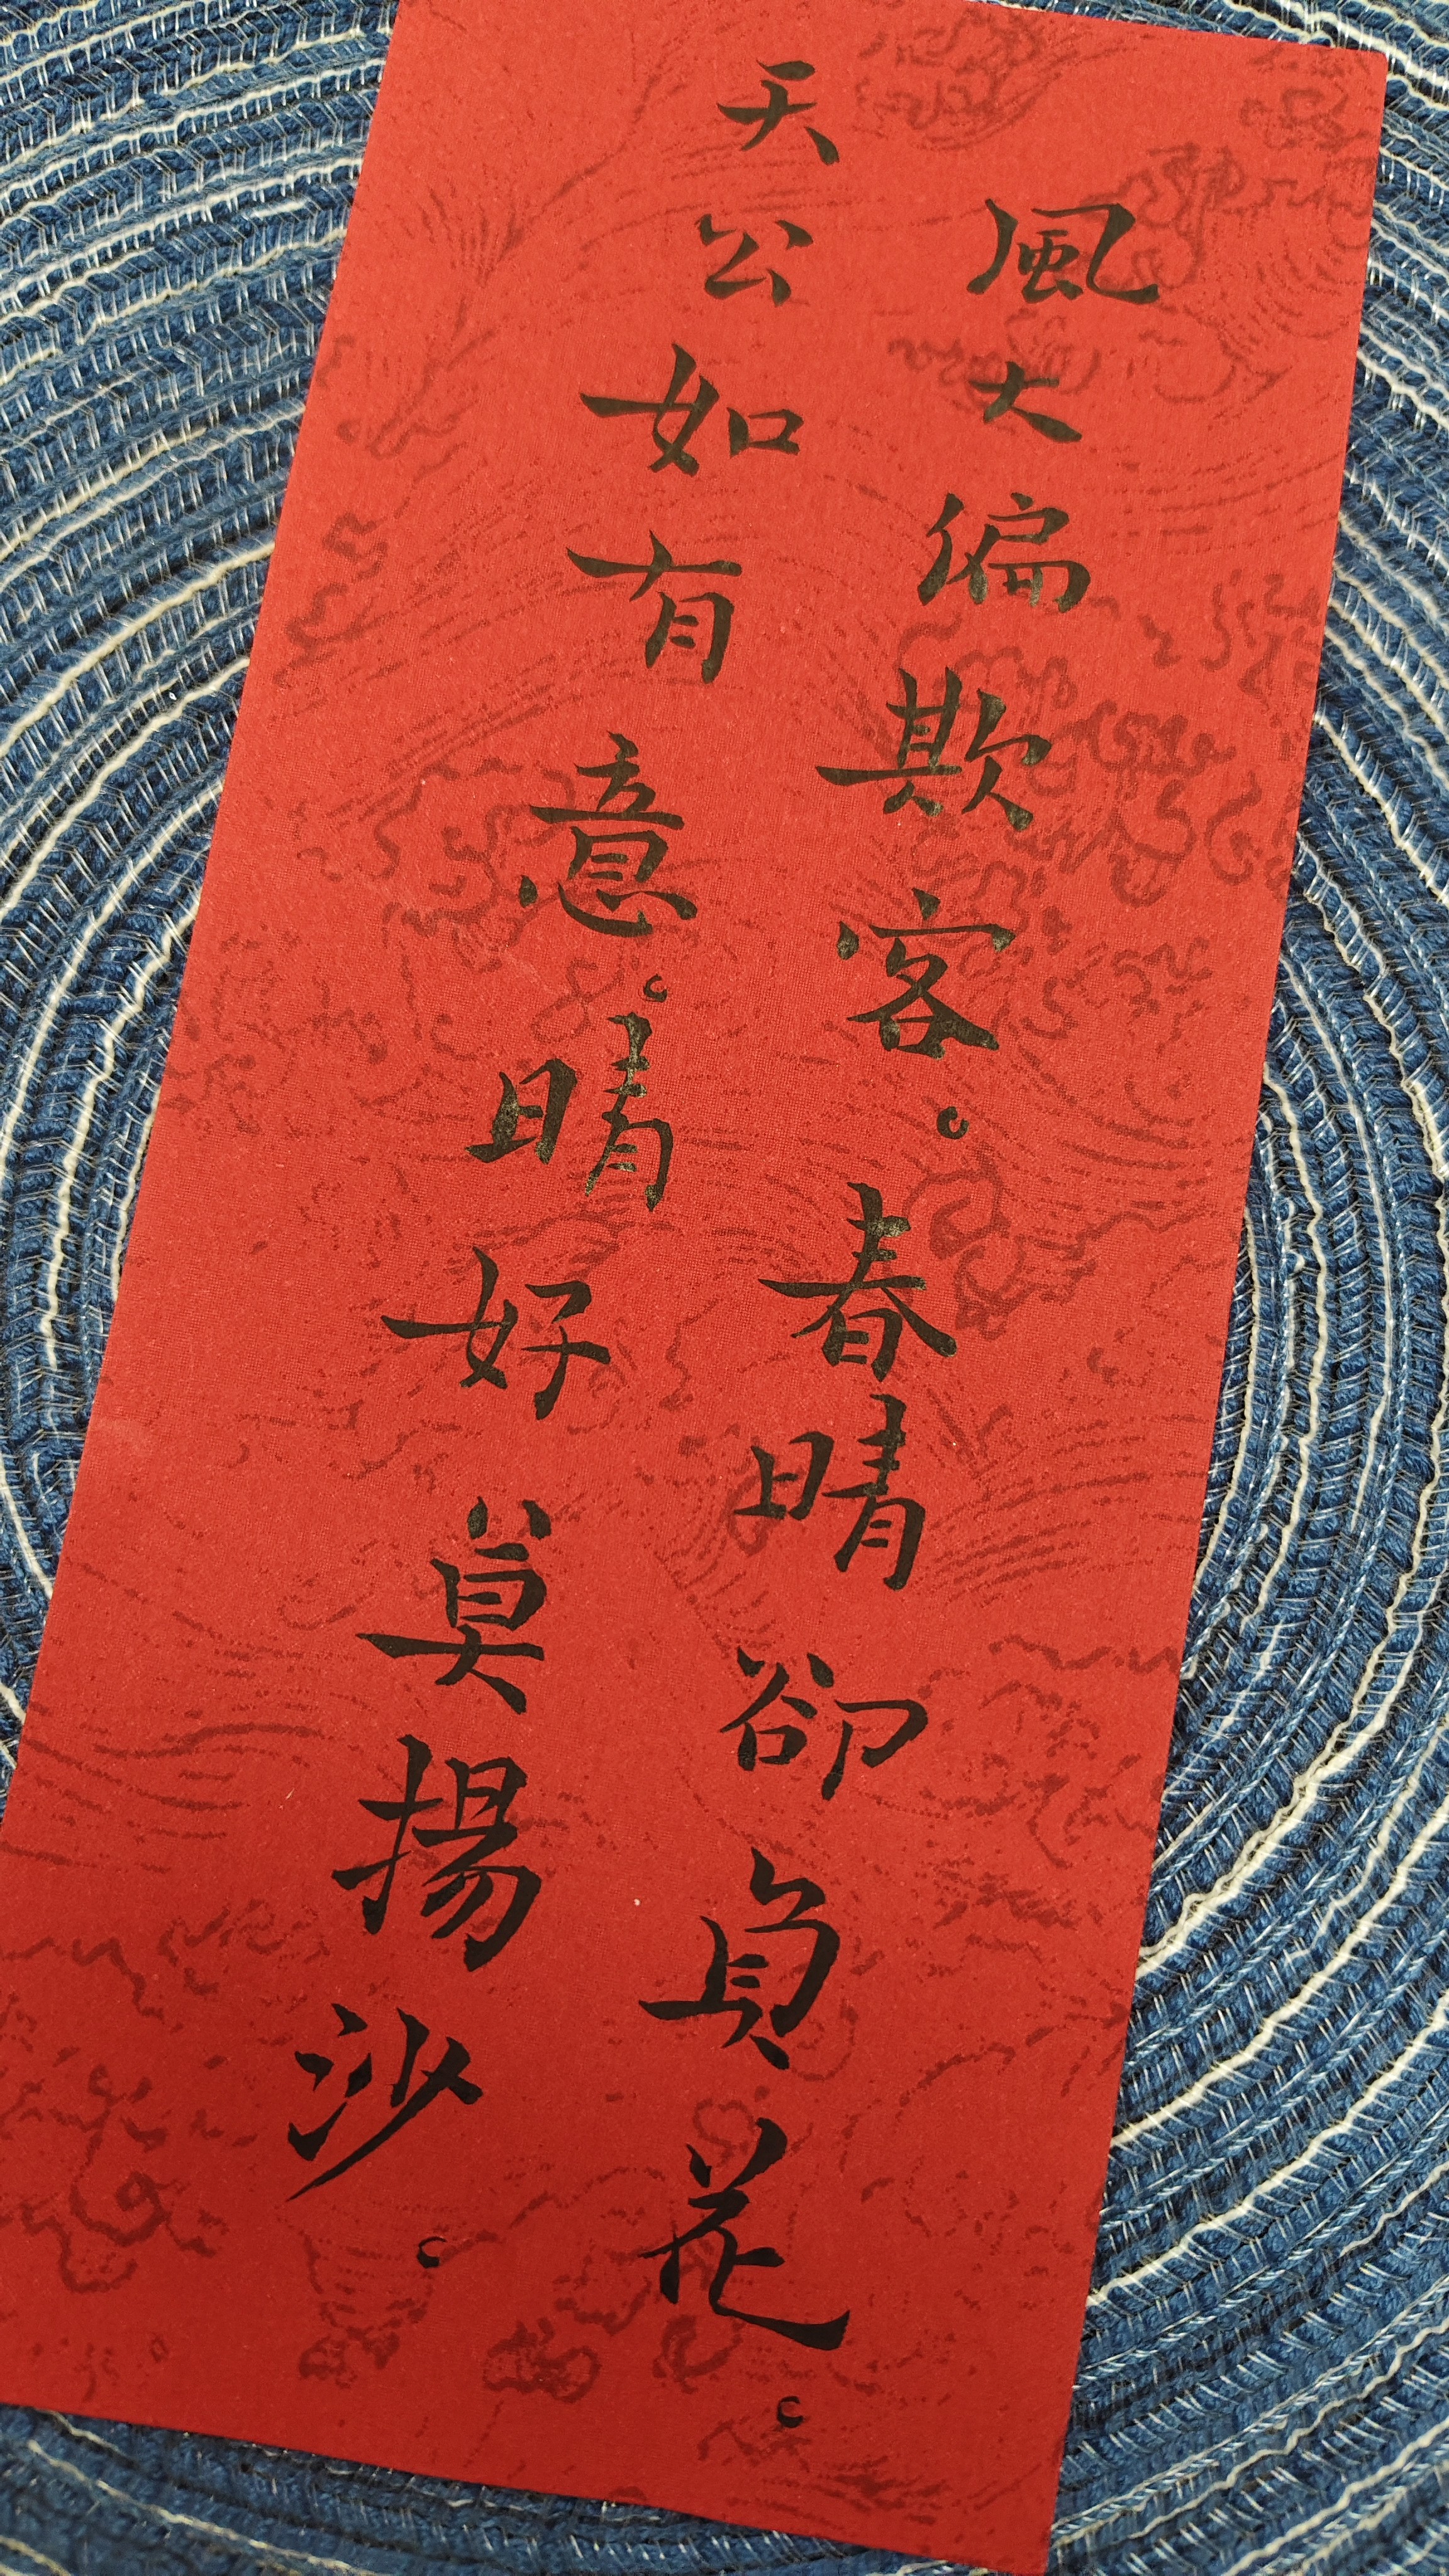 風大偏欺客。春晴卻負花。
天公如有意。晴好莫揚沙。